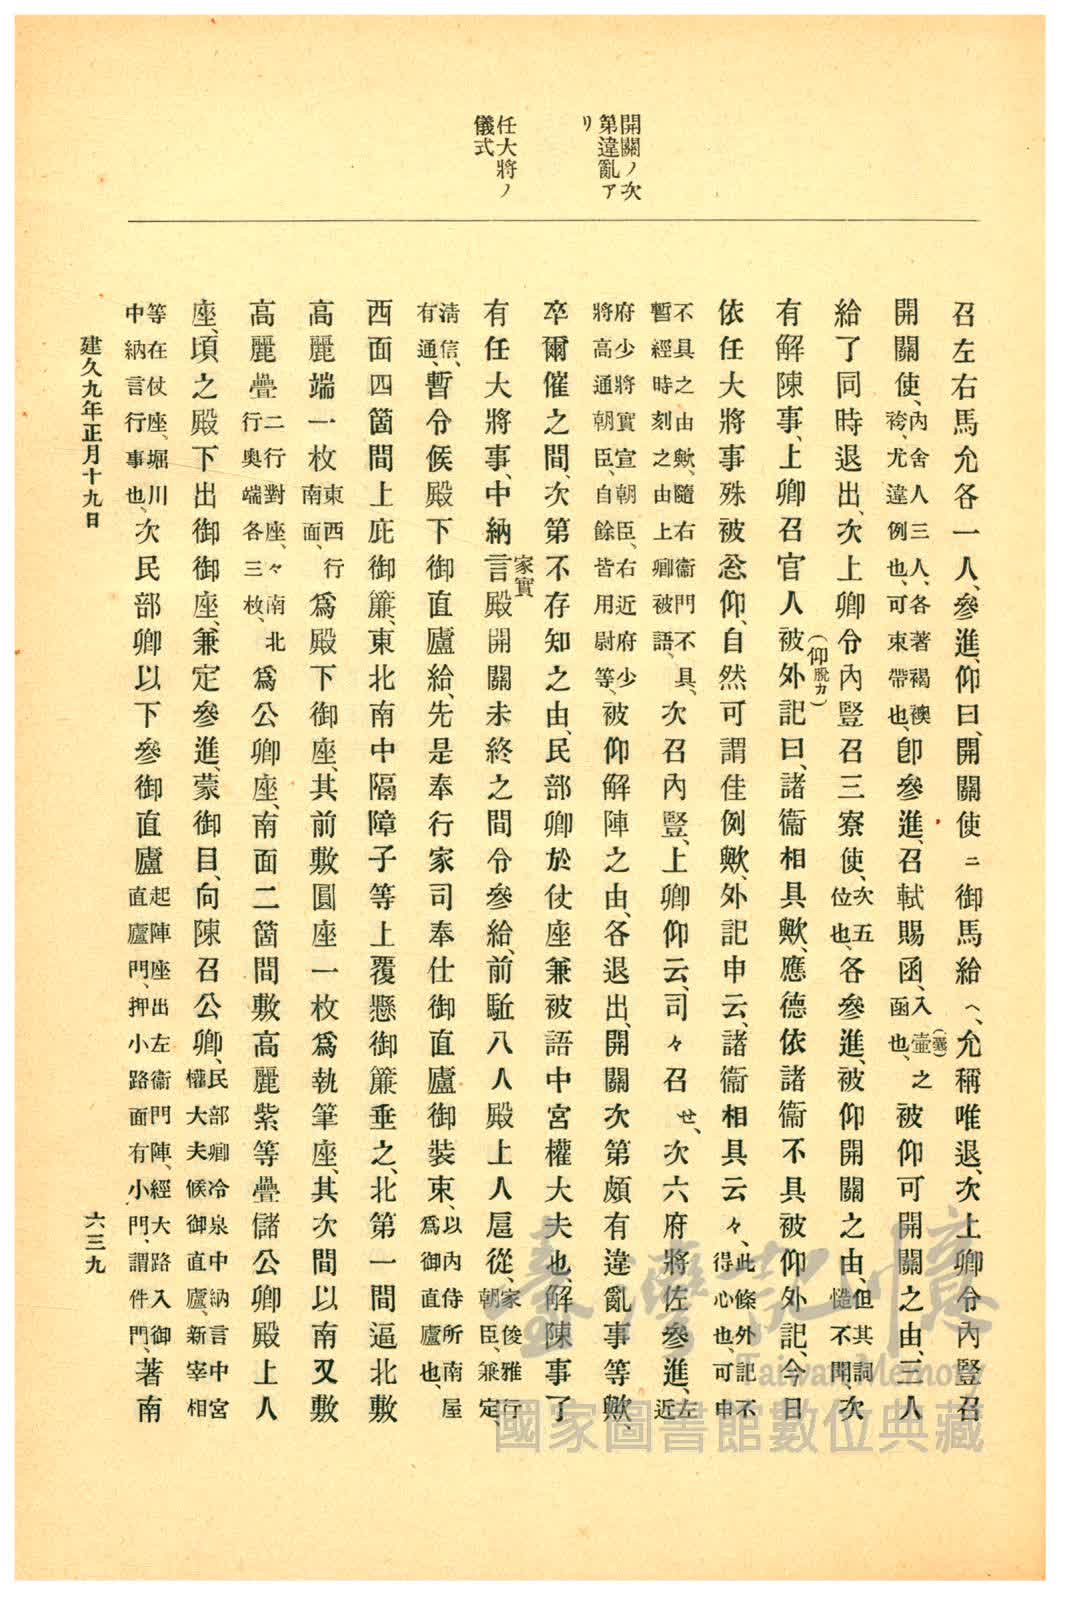 開關ノ次
第違亂ア
リ
任大將ノ
儀式
召左右馬允各一人、參進、仰曰、開關使ニ御馬給ヘ、允稱唯退、次上卿令內豎召
開關使、內舍人三人、各著褐襖袴、尤違例也、可束帶也、卽參進、召軾賜函、入壷(囊)之函也、被仰可開關之由、三人
給了同時退出、次上卿令內豎召三寮使、次五位也、各參進、被仰開關之由、但其詞慥不聞、次
有解陳事、上卿召官人被(仰脫カ)外記曰、諸衞相具歟、應德依諸衞不具被仰外記、今日
依任大將事殊被忩仰、自然可謂佳例歟、外記申云、諸衞相具云々、此條外記不得心也、可申
不具之由歟、隨右衞門不具、暫經時刻之由上卿被語、次召內豎、上卿仰云、司々召セ、次六府將佐參進、左近
府少將實宣朝臣、右近府少將高通朝臣、自餘皆用尉等、被仰解陣之由、各退出、開關次第頗有違亂事等歟、
卒爾催之間、次第不存知之由、民部卿於仗座兼被語中宮權大夫也、解陳事了
有任大將事、中納言家實殿開關未終之間令參給、前駈八人殿上人扈從、家俊雅行朝臣、兼定、
淸信、有通、暫令候殿下御直廬給、先是奉行家司奉仕御直廬御裝束、以內侍所南屋爲御直廬也、
西面四箇間上庇御簾、東北南中隔障子等上覆懸御簾垂之、北第一間逼北敷
高麗端一枚東西行南面、爲殿下御座、其前敷圓座一枚爲執筆座、其次間以南又敷
高麗疊二行對座、々南北行奧端各三枚、爲公卿座、南面二箇間敷高麗紫等疊儲公卿殿上人
座、頃之殿下出御御座、兼定參進、蒙御目、向陳召公卿、民部卿冷泉中納言中宮權大夫候御直廬、新宰相
等在仗座、堀川中納言行事也、次民部卿以下參御直廬起陣座出左衞門陣、經大路入御直廬門、押小路面有小門、謂件門、著南
建久九年正月十九日
六三九
臺灣記憶
Taiwan Memory
國家圖書館數位典藏